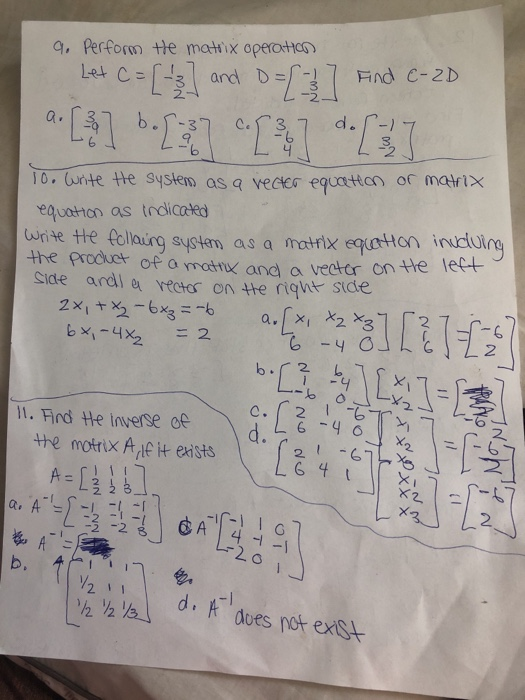 9. Perform the matrix operation
Let C = [1 -3 2] and D = [-1 3 -2] Find C-2D
a. [3 -9 6] b. [-3 9 -6] c. [3 -6 4] d. [-1 3 -2]
10. Write the system as a vector equation or matrix
equation as indicated
Write the following system as a matrix equation involving
the product of a matrix and a vector on the left
side and a vector on the right side
2x₁ + x₂ - 6x₃ = -6
6x₁ - 4x₂ = 2
a. [x₁ x₂ x₃ 6 -4 0] [2 1 6] = [-6 2]
b. [2 6 1 -4 -6 0] [x₁ x₂] = [-6 2]
c. [2 1 -6 6 -4 0] [x₁ x₂ x₃] = [-6 2]
d. [2 1 -6 6 4 1] [x₁ x₂ x₃] = [-6 2]
11. Find the inverse of
the matrix A, if it exists
A = [1 1 1 2 1 1 2 2 3]
a. A⁻¹ = [-1 -1 -1 -2 -1 -1 -2 -2 3]
c A⁻¹ [-1 1 0 4 -1 -1 -2 0 1]
b. A⁻¹ = [1 1 1 1/2 1 1 1/2 1/2 1/3]
d. A⁻¹ does not exist